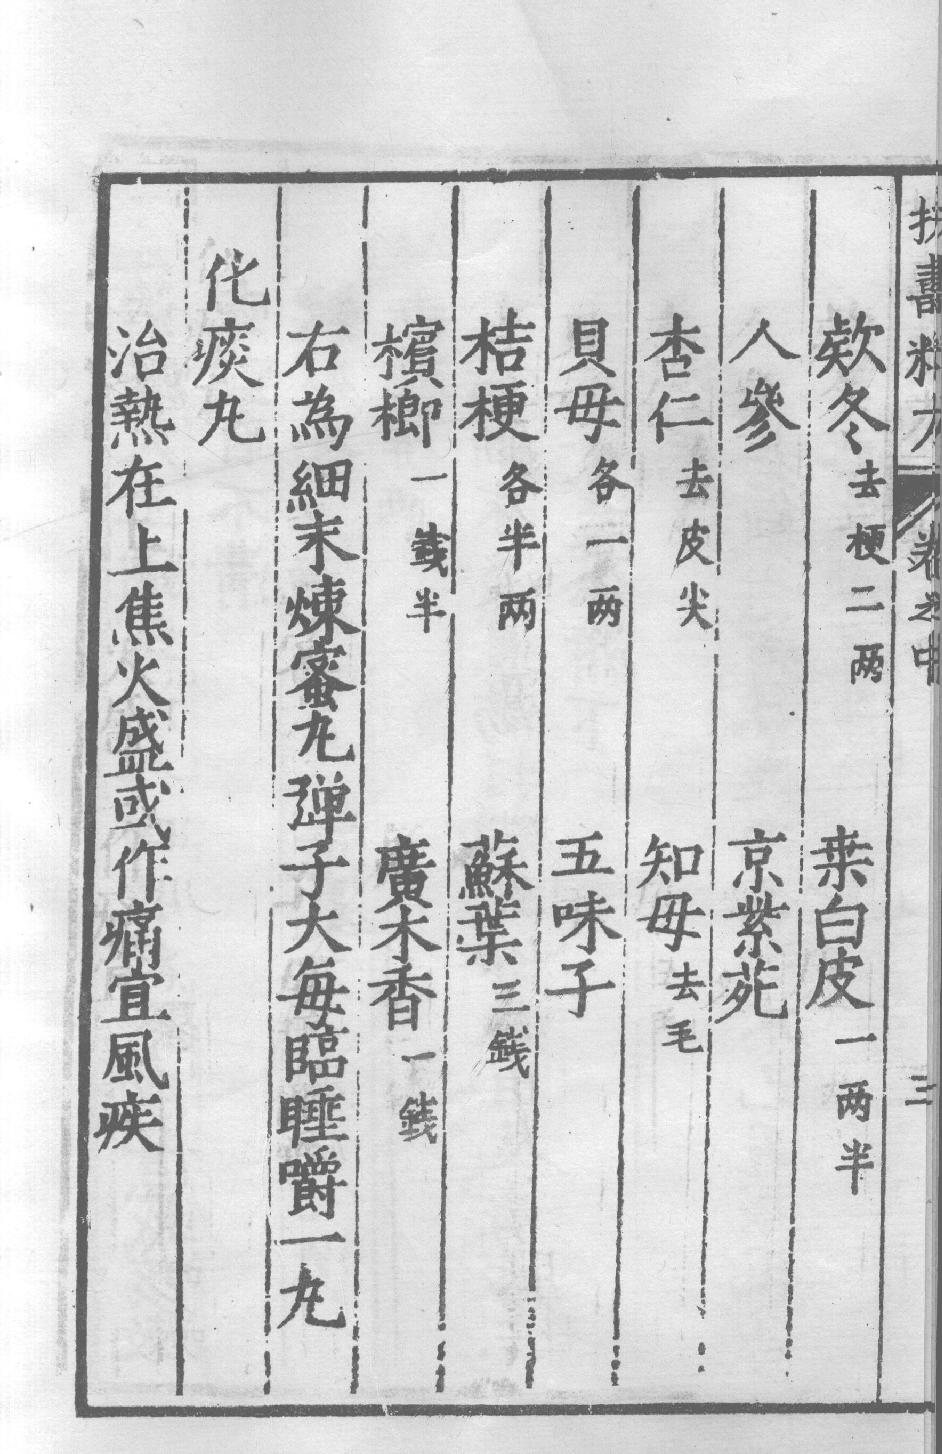 扶壽精方 卷之中 三
欵冬去梗二两 桒白皮一两半
人參 京紫菀
杏仁去皮尖 知母去毛
貝母各一两 五味子
桔梗各半两 蘇葉三錢
檳榔一錢半 廣木香一錢
右為細末煉蜜丸弾子大每臨睡嚼一丸
化痰丸
治熱在上焦火盛或作痛宜風痰